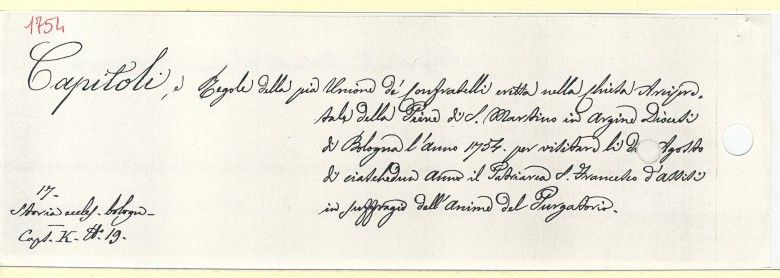 1754
Capitoli, e Regole della pia Unione de' Confratelli eretta nella Chiesa Arcipre-
tale della Pieve di S. Martino in Argine Diocesi
di Bologna l'Anno 1754. per visitare li Agosto
di ciaschedun Anno il Patriarca S. Francesco d'Assisi
in suffragio dell'Anime del Purgatorio.
17-
Storia eccles. bologn-
Caps. K- N. 19.